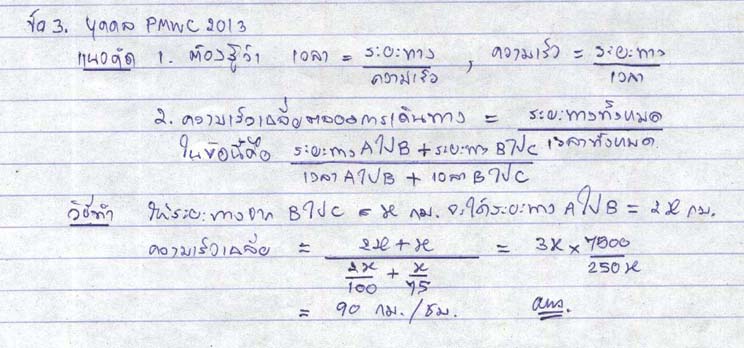 ข้อ 3. บุคคล PMWC 2013
แนวคิด 1. ต้องรู้ว่า เวลา = ระยะทาง/ความเร็ว , ความเร็ว = ระยะทาง/เวลา
2. ความเร็วเฉลี่ยตลอดการเดินทาง = ระยะทางทั้งหมด/เวลาทั้งหมด
ในข้อนี้คือ (ระยะทาง A ไป B + ระยะทาง B ไป C)/(เวลา A ไป B + เวลา B ไป C)
วิธีทำ ให้ระยะทางจาก B ไป C = x กม. จะได้ระยะทาง A ไป B = 2x กม.
ความเร็วเฉลี่ย = (2x + x)/(2x/100 + x/75) = 3x × 7500/250x
= 90 กม./ชม. ans.